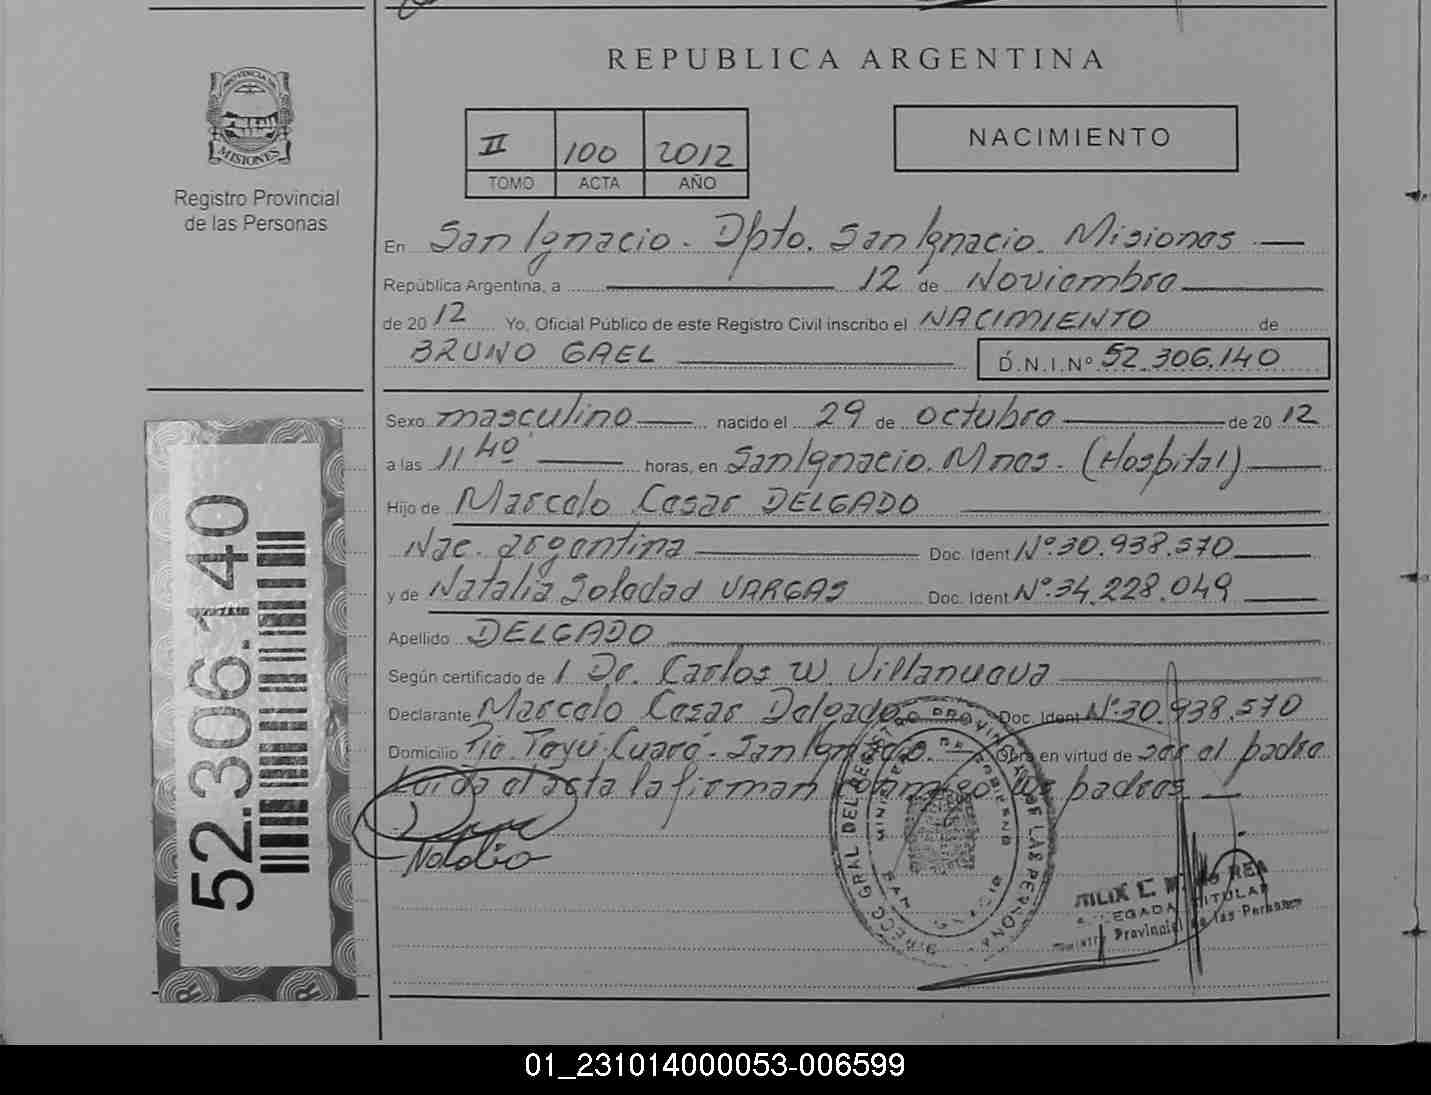 REPUBLICA ARGENTINA
PROVINCIA DE
MISIONES
Registro Provincial
de las Personas
II 100 2012
TOMO ACTA AÑO
NACIMIENTO
En San Ignacio. Dpto. San Ignacio. Misiones
República Argentina, a 12 de Noviembre
de 2012 Yo, Oficial Público de este Registro Civil inscribo el NACIMIENTO de
BRUNO GAEL D.N.I.Nº 52.306.140
Sexo masculino nacido el 29 de octubre de 2012
a las 11 40' horas, en San Ignacio. Mnes. (Hospital)
Hijo de Marcelo Cesar DELGADO
Nac. argentina Doc. Ident Nº 30.938.570
y de Natalia Soledad VARGAS Doc. Ident Nº 34.228.049
Apellido DELGADO
Según certificado de 1 Dr. Carlos W. Villanueva
Declarante Marcelo Cesar Delgado Doc. Ident Nº 30.938.570
Domicilio Pje. Teyú Cuaré. San Ignacio. Obra en virtud de ser el padre
Leída el acta la firman los padres
Natalia
52.306.140
DIREC. GRAL DEL REGISTRO PROVINCIAL DE LAS PERSONAS
TITULAR
Provincial de las Personas
01_231014000053-006599